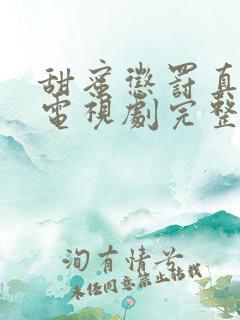 甜蜜懲罰真
電視劇完整
洵有情兮
未经同意禁止转载